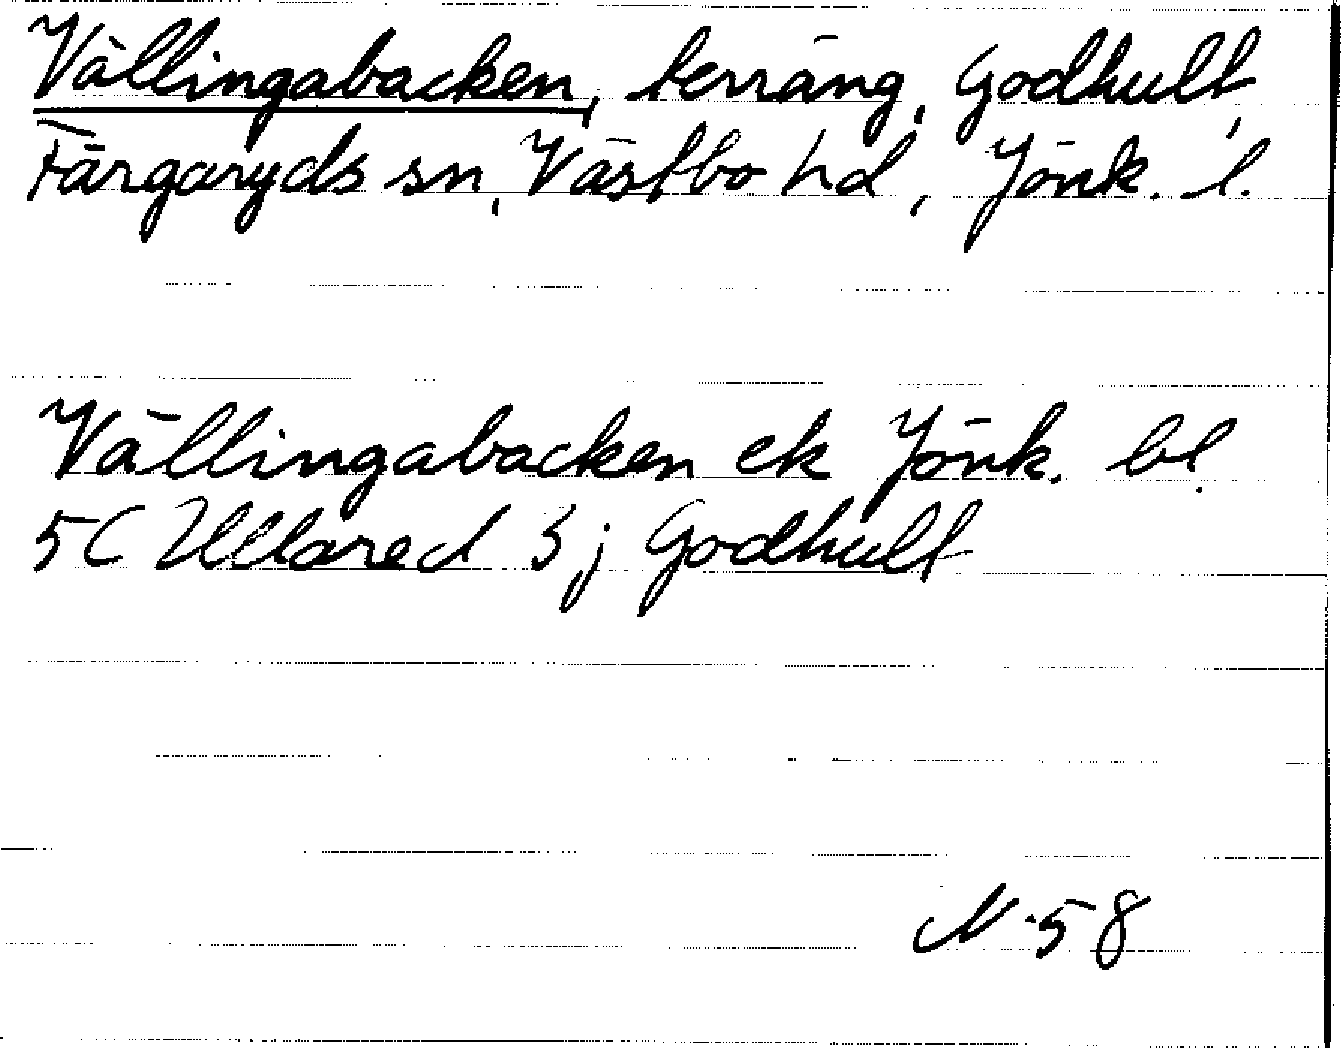 Vällingabacken, terräng, Godhult,
Färgaryds sn, Västbo hd, Jönk. l.
Vällingabacken ek Jönk. bl.
5C Ullared 3j Godhult
N 58